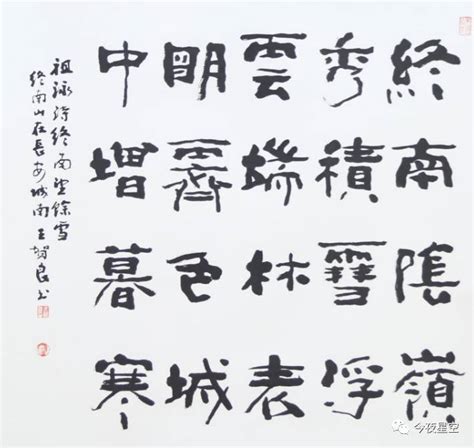 終南陰嶺
秀積雪浮
雲端林表
明霽色城
中增暮寒
祖詠詩終南望餘雪
終南山在長安城南王良书
今夜星空